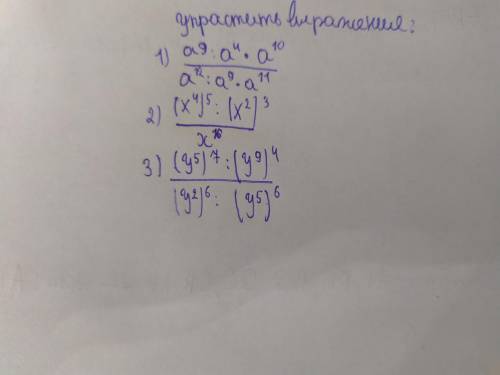 упрастить выражения:
1) a⁹ : a⁴ · a¹⁰
a¹² : a⁹ · a¹¹
2) (x⁴)⁵ : (x²)³
x¹⁶
3) (y⁵)⁷ : (y⁹)⁴
(y²)⁶ : (y⁵)⁶